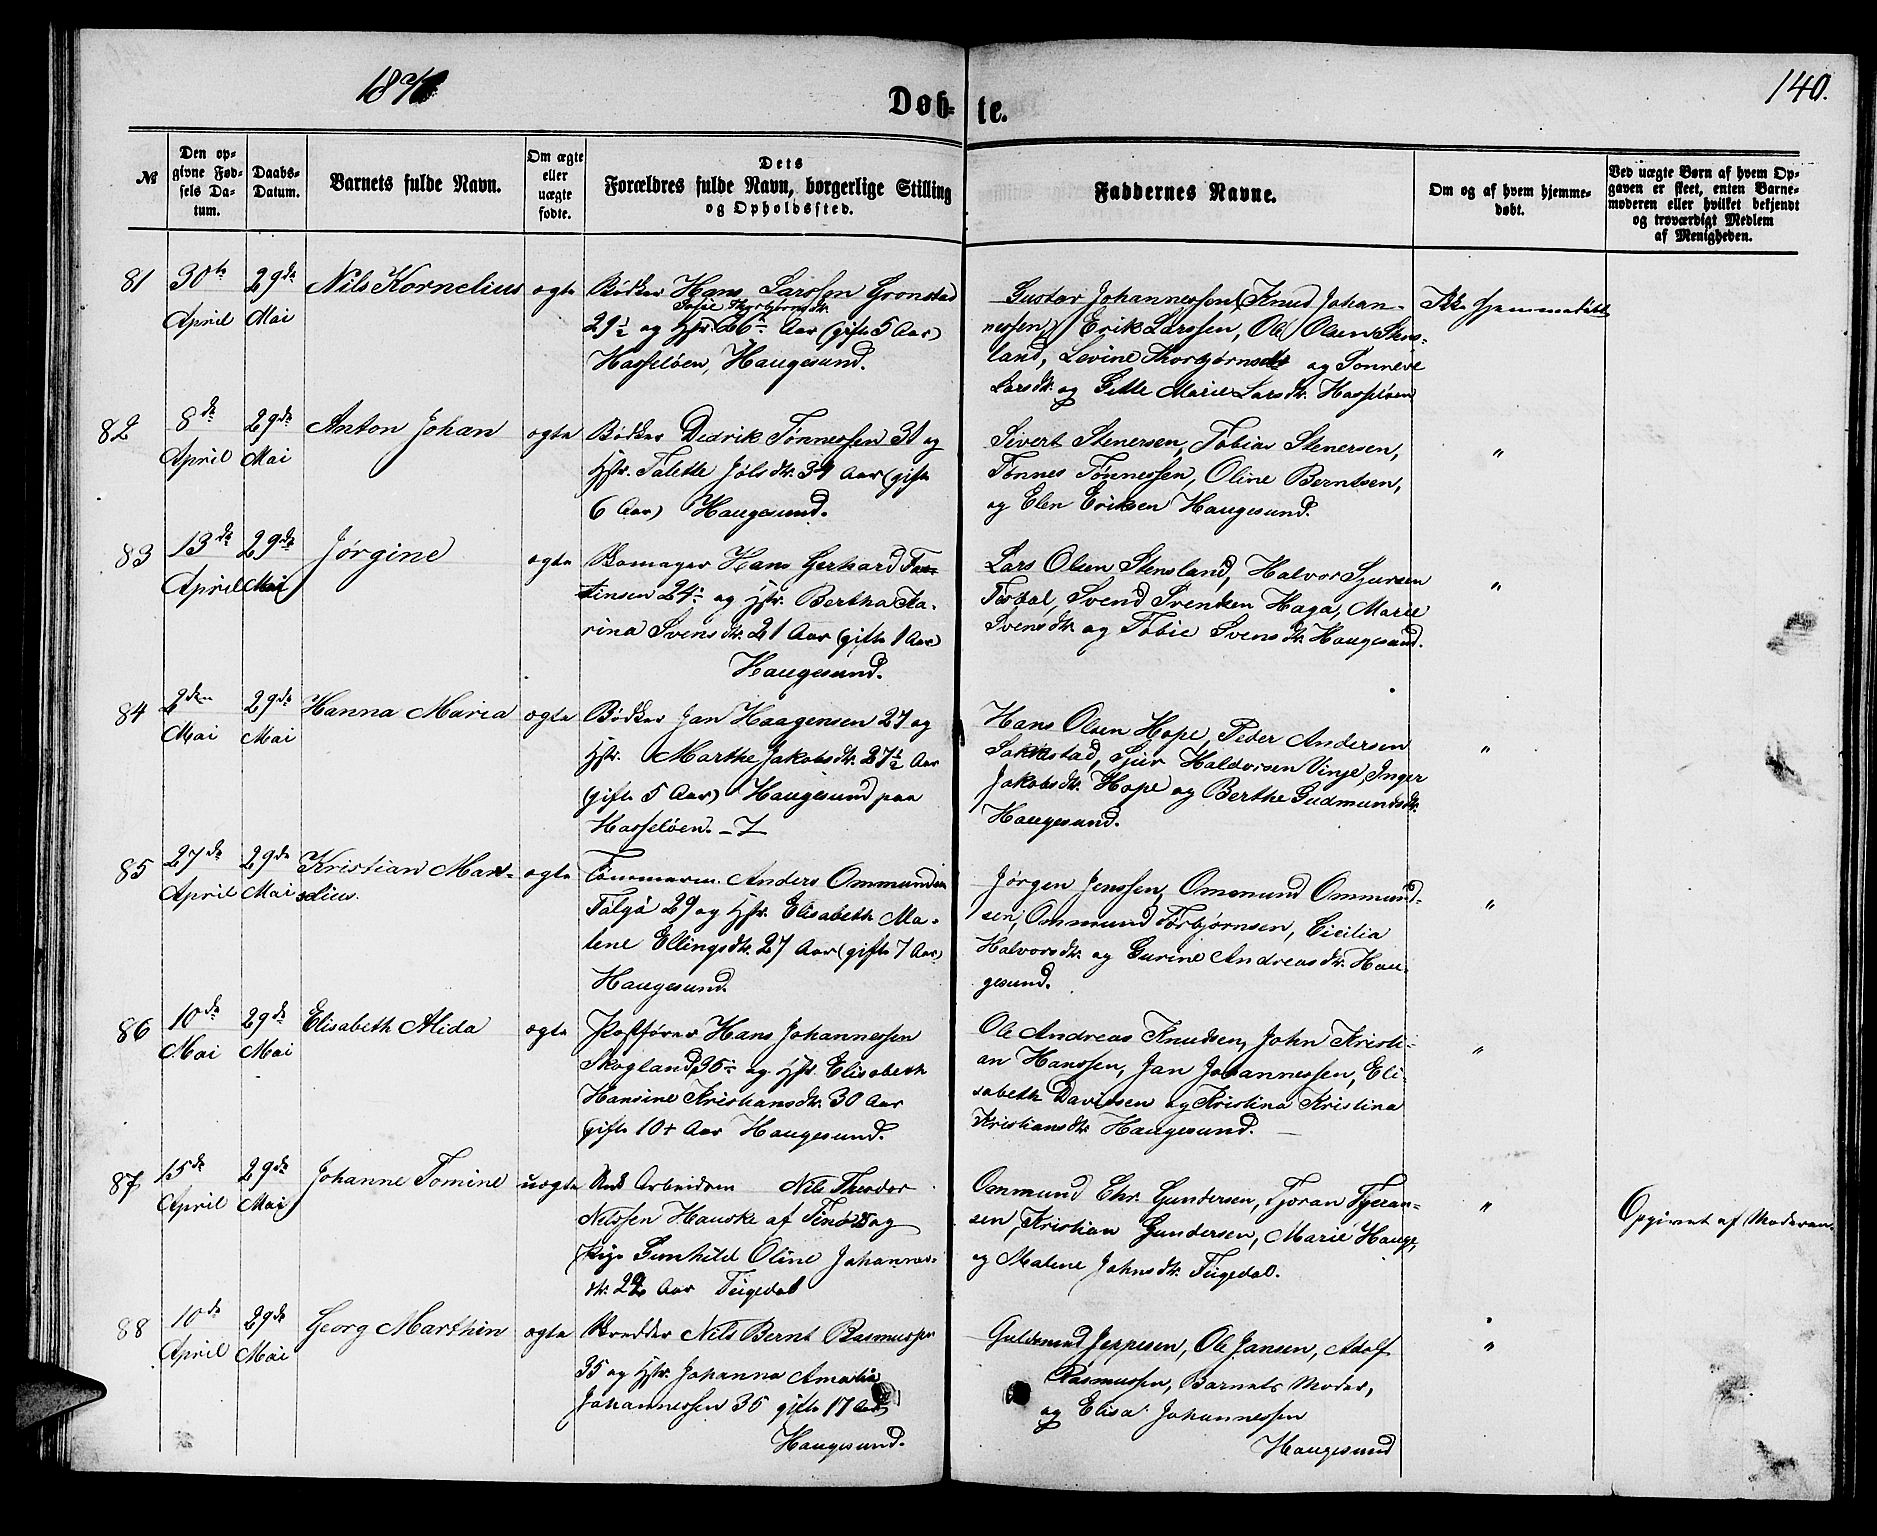 140.
Døb- te.
№
Den op-
givne Fød-
sels Da-
tum.
Daabs-
Datum.
Barnets fulde Navn.
Om ægte
eller
uægte
fødte.
Dets
Forældres fulde Navn, borgerlige Stilling
og Opholdssted.
Faddernes Navne.
Om og af hvem hjemme-
døbt.
Ved uægte Børn af hvem Op-
gaven er skeet, enten Barne-
moderen eller hvilket bekjendt
og troværdigt Medlem
af Menigheden.
81
30te
April
29de
Mai
Nils Kornelius
ægte
Bødker Hans Larssen Gronstad
Thorbjørnsdtr.
29½ og Hstr. 26 Aar (gifte 5 Aar)
Hasseløen, Haugesund.
Gustav Johannessen (Knud Johan-
nessen) Erik Larssen, Ole Olsen Stens-
land, Levine Thorbjørnsdtr og Sonneve
Larsdtr. og Gitte Marie Larsdtr. Hasseløen
Ikke hjemmedøbt
82
8de
April
29de
Mai
Anton Johan
ægte
Bødker Dedrik Tønnessen 31 og
Hstr. Talette Jølsdtr. 34 Aar (gifte
6 Aar) Haugesund.
Sivert Stenersen, Tobias Stenersen,
Tønnes Tønnessen, Oline Berntsen,
og Elen Eriksen Haugesund.
"
83
13de
April
29de
Mai
Jørgine
ægte
Skomager Hans Gerhard
tinsen 24 og Hstr. Bertha Ka-
rina Svensdtr. 21 Aar (gifte 1 Aar)
Haugesund.
Lars Olsen Stensland, Halvor Sjursen
Svend Svendsen Haga, Marie
Svensdtr. og Tobie Svensdtr. Haugesund.
"
84
2den
Mai
29de
Mai
Hanna Maria
ægte
Bødker Jan Haagensen 27 og
Hstr. Marthe Jakobsdtr. 27½ Aar
(gifte 5 Aar) Haugesund paa
Hasseløen.
Hans Olsen Hope, Peder Andersen
Sjur Haldorsen Vinje, Inger
Jakobsdtr. Hope og Berthe Gudmundsdtr.
Haugesund.
"
85
27de
April
29de
Mai
Kristian Mar-
selius.
ægte
Tømmerm. Anders Ommundsen
29 og Hstr. Elisabeth Ma-
lene Ellingsdtr. 27 Aar (gifte 7 Aar)
Haugesund.
Jørgen Jenssen, Ommund Ommund-
sen, Ommund Torbjørnsen, Cicilia
Halvorsdtr. og Gurine Andreasdtr. Hau-
gesund.
"
86
10de
Mai
29de
Mai
Elisabeth Alida
ægte
Postfører Hans Johannessen
Skogland, 35 og Hstr. Elisabeth
Hansine Kristiansdtr. 30 Aar
(gifte 10+ Aar Haugesund.
Ole Andreas Knudsen, John Kristi-
an Hanssen, Jan Johannessen, Eli-
sabeth Davidsen og Kristina Kristina
Kristiansdtr. Haugesund.
"
87
15de
April
29de
Mai
Johanne Tomine
uægte
Arbeider Nils Theodor
Nilssen Hauske af og
Pige Gunhild Oline Johannes-
dtr. 22 Aar
Ommund Chr. Gundersen,
sen, Kristian Gundersen, Marie Hauge,
og Malene Johnsdtr.
"
Opgivet af Moderen.
88
10de
April
29de
Mai
Georg Marthin
ægte
Skredder Nils Bernt Rasmussen
35 og Hstr. Johanna Amalia
Johannessen 36 gifte 17 Aar
Haugesund.
Jeppesen, Ole Jansen, Adolf
Rasmussen, Barnets Moder,
og Elisa Johannessen
Haugesund
"